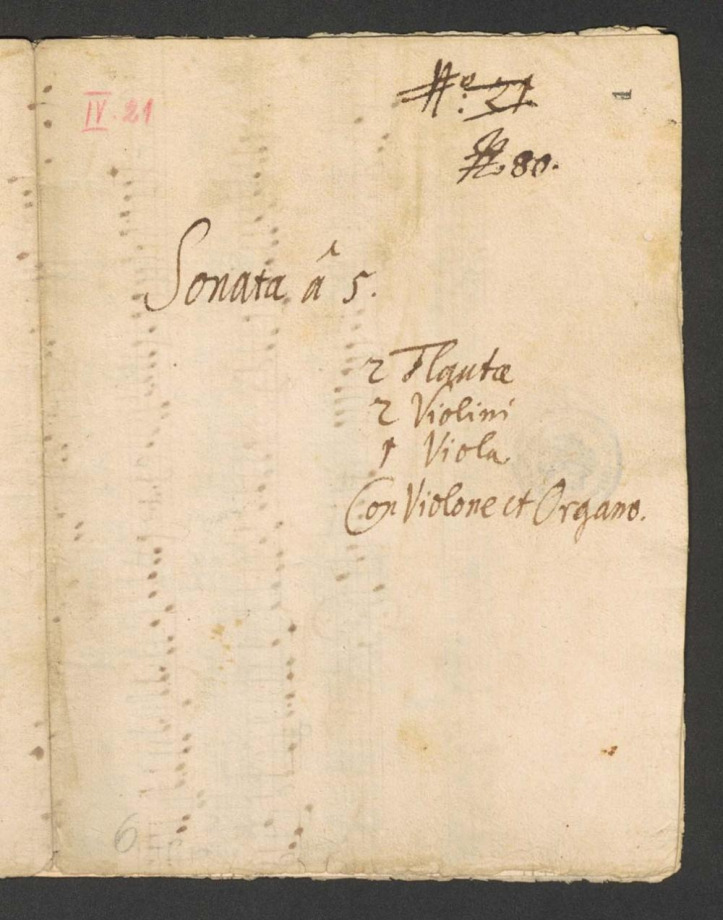 IV. 21
No: 21
No. 80.
Sonata â 5.
2 Flautæ
2 Violini
1 Viola
Con Violone et Organo.
6